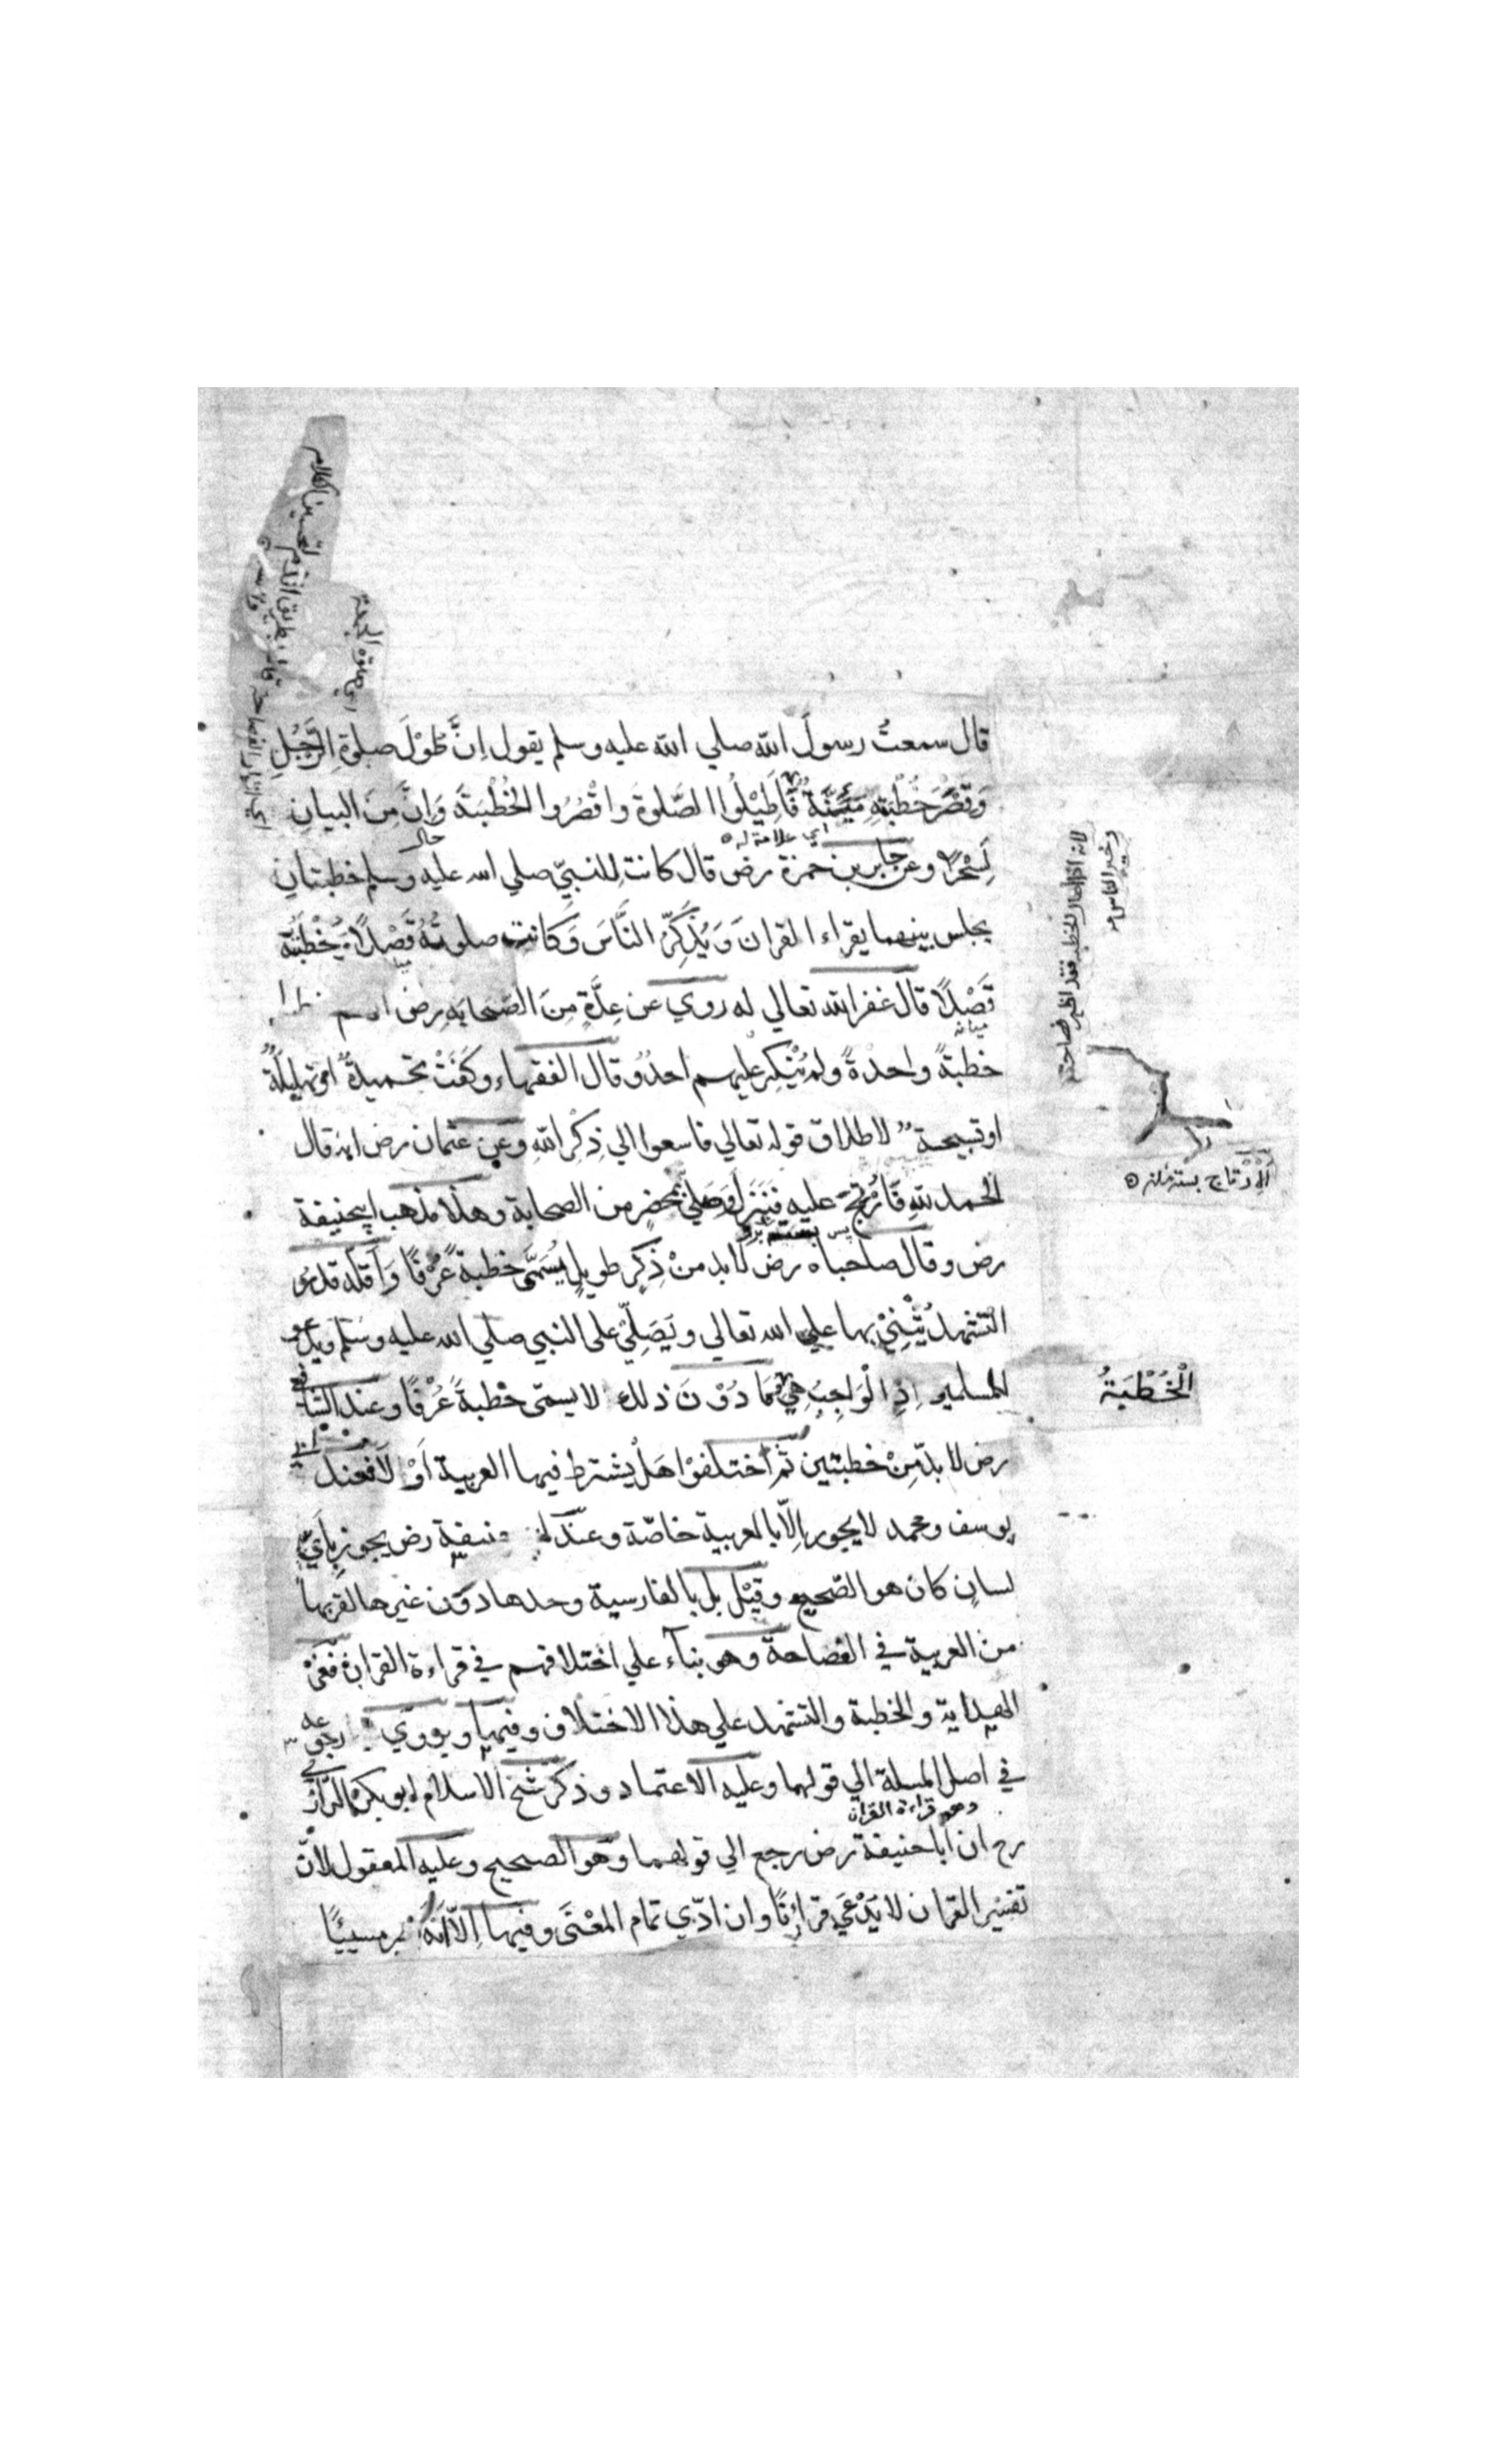 قال سمعتُ رسولَ الله صلي الله عليه وسلم يقول اِنَّ طُوْلَ صلوةِ الرَّجُلِ
وَقِصْرَ خُطْبَتِهِ مَئِنَّةٌ فَاَطِيْلُوا الصَّلوةَ واقْصُرُوا الخُطْبَةَ وَاِنَّ مِنَ البيانِ
اي علامة له
لَسِحْرًا وعن جابر بن حمزة رض قال كانت للنبيّ صلي الله عليه وسلم خطبتان
يجلس بينهما يقراء القران وَيُذَكِّرُ النَّاسَ وَكانت صلوتُهُ قَصْدًا وَخُطْبَتُهُ
قَصْدًا قال غفر الله تعالي له روي عن عِدَّةٍ مِنَ الصّحابة رض
ميانه
خطبةً واحدةً ولم يُنْكِر عليهم احدٌ وقال الفقهاء وكَفَتْ تحميدةٌ او تهليلةٌ
او تسبيحةٌ لاطلاق قوله تعالي فاسعوا الي ذِكْرِ اللهِ وعن عثمان رض انه قال
الحمد للهِ فَاُرْتِجَ عليه فَنَزَلَ وَصَلّيٰ بمحضرٍ من الصحابة وهذا مذهب ابيحنيفة
رض وقال صاحباه رض لا بد منْ ذِكْرٍ طويلٍ يُسَمّٰى خطبةً عُرْفًا وَاَقَلُّه قدرُ
التشهدِ يُثْنِيْ بها علي الله تعالى ويُصَلِّيْ على النبي صلي الله عليه وسلم ويدعو
للمسلمين اِذِ الْوَاجِبُ هِيَ وَمَا دُوْنَ ذلك لا يسمّى خطبةً عُرْفًا وعند الشافعي
رض لا بدّ مِنْ خطبتين ثُمّ اختلفوْا هَلْ يشترط فيها العربية اَوْ لَا فعند ابي
يوسف ومحمد لا يجوز اِلّا بالعربية خاصّة وعند ابي حنيفة رض يجوز بِاَيِّ
لسانٍ كان هو الصّحيح وقِيْلَ بل بالفارسية وحدها دون غيرها لقربها
من العربية في الفصاحة وهو بناءٌ علي اختلافهم في قراءة القران ففي
الهداية والخطبة والتشهد علي هذا الاختلاف وفيها ويروي رجوعه
في اصل المسلة الي قولهما وعليه الاعتماد وذكر شيخ الاسلام ابو بكر الرّازي
وهو قراءة القران
رح ان ابا حنيفة رض رجع الي قولهما وهو الصحيح وعليه المعقول لانّ
تفسير القران لا يُدْعيٰ قرانًا وان ادّي تمام المعْنَى وفيها اِلّا اَنَّهُ يصير مسيئًا
لانه اذا اطال الخطبة فقد اظهر فصاحته
اَلْاِرْتاج بسته شدن
اَلْخُطْبَةُ
اي صلوة الجمعة